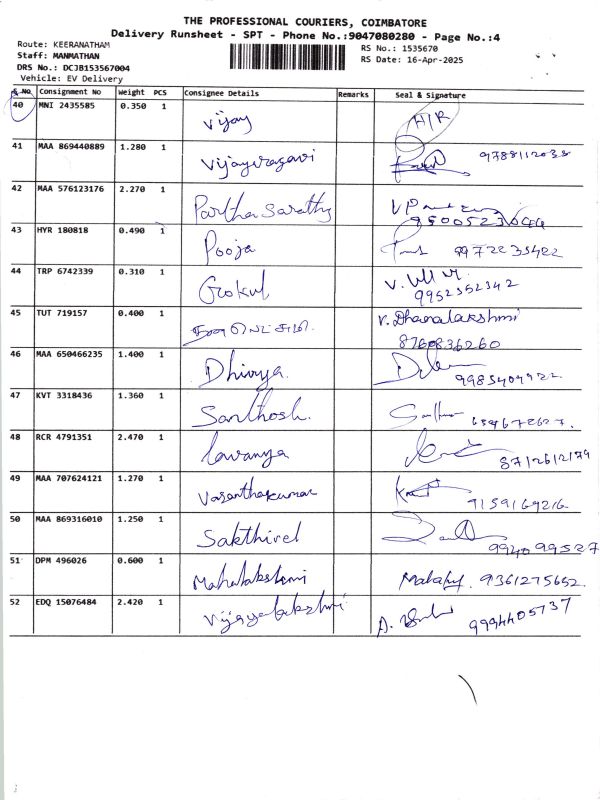 THE PROFESSIONAL COURIERS, COIMBATORE
Delivery Runsheet - SPT - Phone No.:9047080280 - Page No.:4
Route: KEERANATHAM
Staff: MANMATHAN
DRS No.: DCJB153567004
Vehicle: EV Delivery
RS No.: 1535670
RS Date: 16-Apr-2025
S.No. Consignment No Weight PCS Consignee Details Remarks Seal & Signature
40 MNI 2435585 0.350 1 Vijay H/R
41 MAA 869440889 1.280 1 Vijayuragavi
42 MAA 576123176 2.270 1 Partha Sarathy
43 HYR 180818 0.490 1 Pooja 9972235422
44 TRP 6742339 0.310 1 Gokul 9952352342
45 TUT 719157 0.400 1 V. Dhanalakshmi
8760836260
46 MAA 650466235 1.400 1 Dhivya
47 KVT 3318436 1.360 1 Santhosh.
48 RCR 4791351 2.470 1 Lavanya 8712612179
49 MAA 707624121 1.270 1 Vasanthakumar 9159169216
50 MAA 869316010 1.250 1 Sakthivel 994099527
51 DPM 496026 0.600 1 Mahalakshmi 9361275652
52 EDQ 15076484 2.420 1 Vijayalakshmi 9994405737